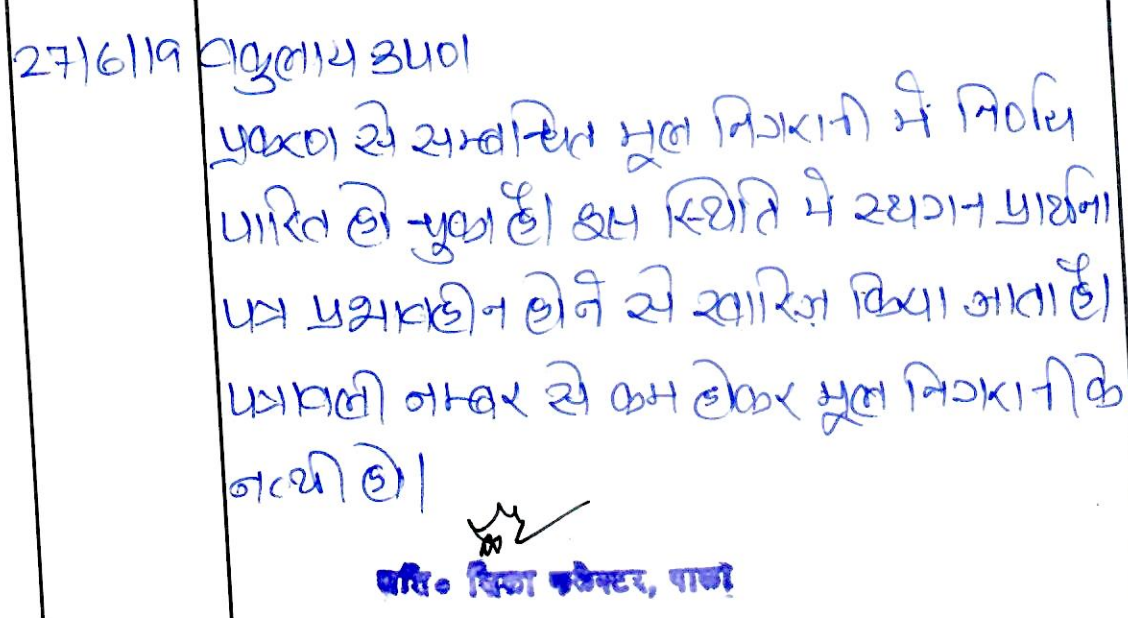 27/6/19 वकुलाय उप०
प्रकरण से सम्बन्धित मूल निगरानी में निर्णय
पारित हो चुका है। इस स्थिति मे स्थगन प्रार्थना
पत्र प्रभावहीन होने से खारिज़ किया जाता है।
पत्रावली नम्बर से कम होकर मूल निगरानी के
नत्थी हो।
अति० जिला कलेक्टर, पाली